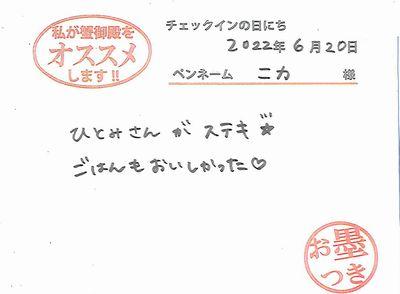 私が蟹御殿を
オススメ
します!!
チェックインの日にち
2022年6月20日
ペンネーム ニカ 様
ひとみさんがステキ★
ごはんもおいしかった♡
お墨
つき